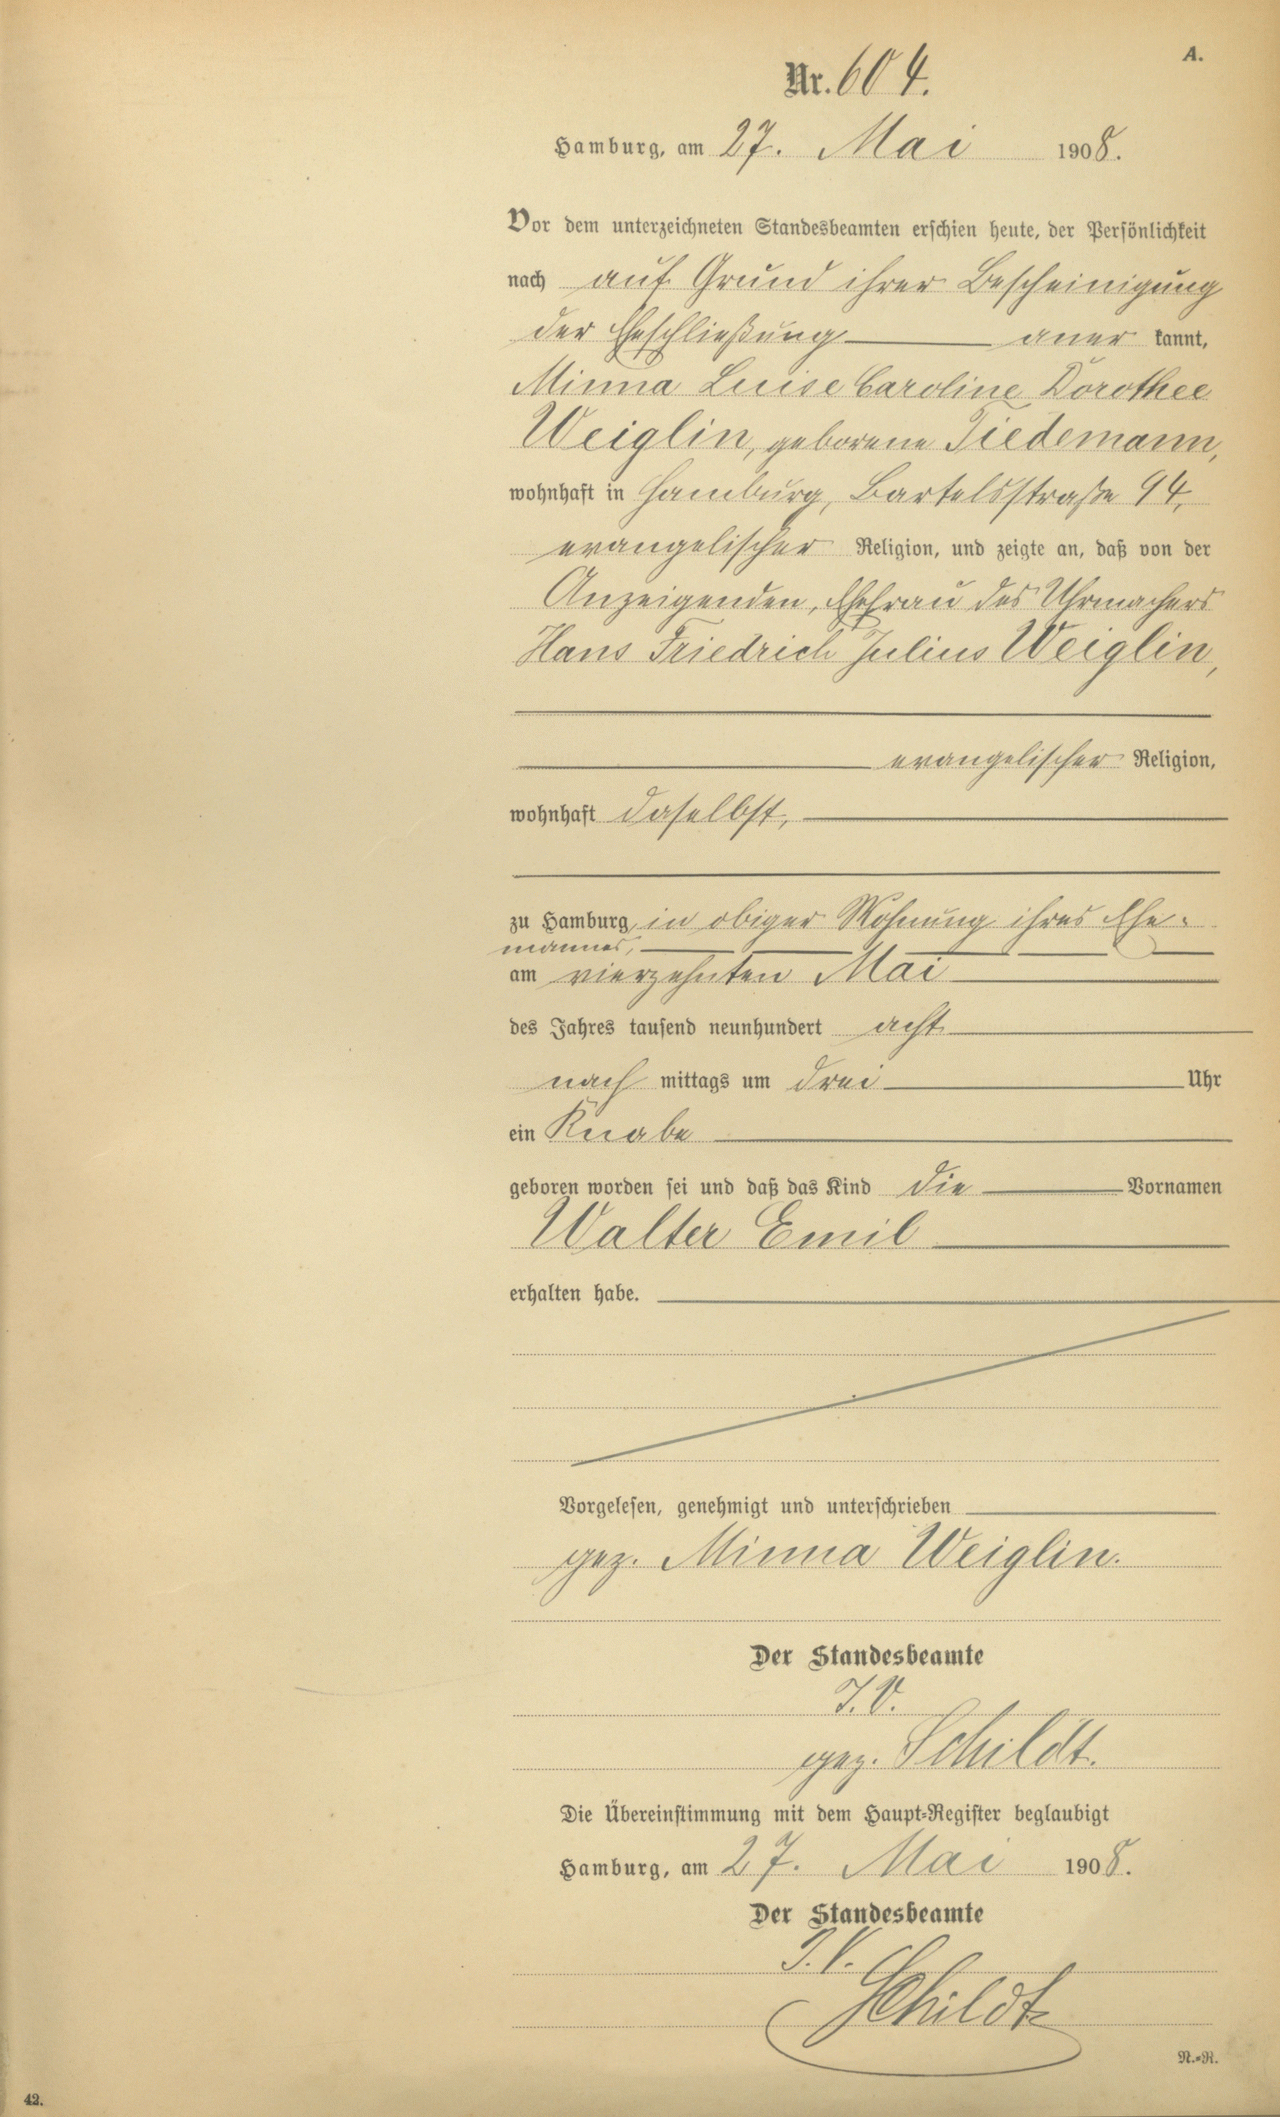 A.
Nr. 604.
Hamburg, am 27. Mai 1908.
Vor dem unterzeichneten Standesbeamten erschien heute, der Persönlichkeit
nach auf Grund ihrer Bescheinigung
der Eheschließung aner kannt,
Minna Luise Caroline Dorothee
Weiglin, geborene Tiedemann,
wohnhaft in Hamburg, Bartelsstraße 94,
evangelischer Religion, und zeigte an, daß von der
Anzeigenden, Ehefrau des Uhrmachers
Hans Friedrich Julius Weiglin,
evangelischer Religion,
wohnhaft daselbst,
zu Hamburg, in obiger Wohnung ihres Ehe-
mannes,
am vierzehnten Mai
des Jahres tausend neunhundert acht
nach mittags um drei Uhr
ein Knabe
geboren worden sei und daß das Kind die Vornamen
Walter Emil
erhalten habe.
Vorgelesen, genehmigt und unterschrieben
gez. Minna Weiglin.
Der Standesbeamte
I.V.
gez. Schildt.
Die Übereinstimmung mit dem Haupt-Register beglaubigt
Hamburg, am 27. Mai 1908.
Der Standesbeamte
I.V.
Schildt
N.-R.
42.